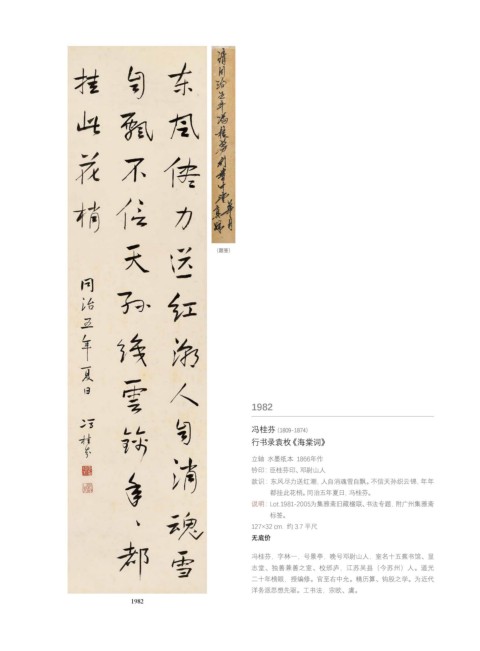 东风侭力送红潮人自消魂雪
自飘不信天孙织云锦年、都
挂此花梢
同治五年夏日 冯桂芬
(题签)
1982
冯桂芬 (1809-1874)
行书录袁枚《海棠词》
立轴 水墨纸本 1866年作
钤印：臣桂芬印、邓尉山人
款识：东风尽力送红潮，人自消魂雪自飘。不信天孙织云锦，年年
都挂此花梢。同治五年夏日，冯桂芬。
说明：Lot.1981-2005为集雅斋旧藏楹联、书法专题，附广州集雅斋
标签。
127×32 cm 约 3.7 平尺
无底价
冯桂芬，字林一，号景亭，晚号邓尉山人，室名十五蕉书馆、显
志堂、独善兼善之室、校邠庐，江苏吴县（今苏州）人。道光
二十年榜眼，授编修，官至右中允。精历算、钩股之学。为近代
洋务派思想先驱。工书法，宗欧、虞。
1982